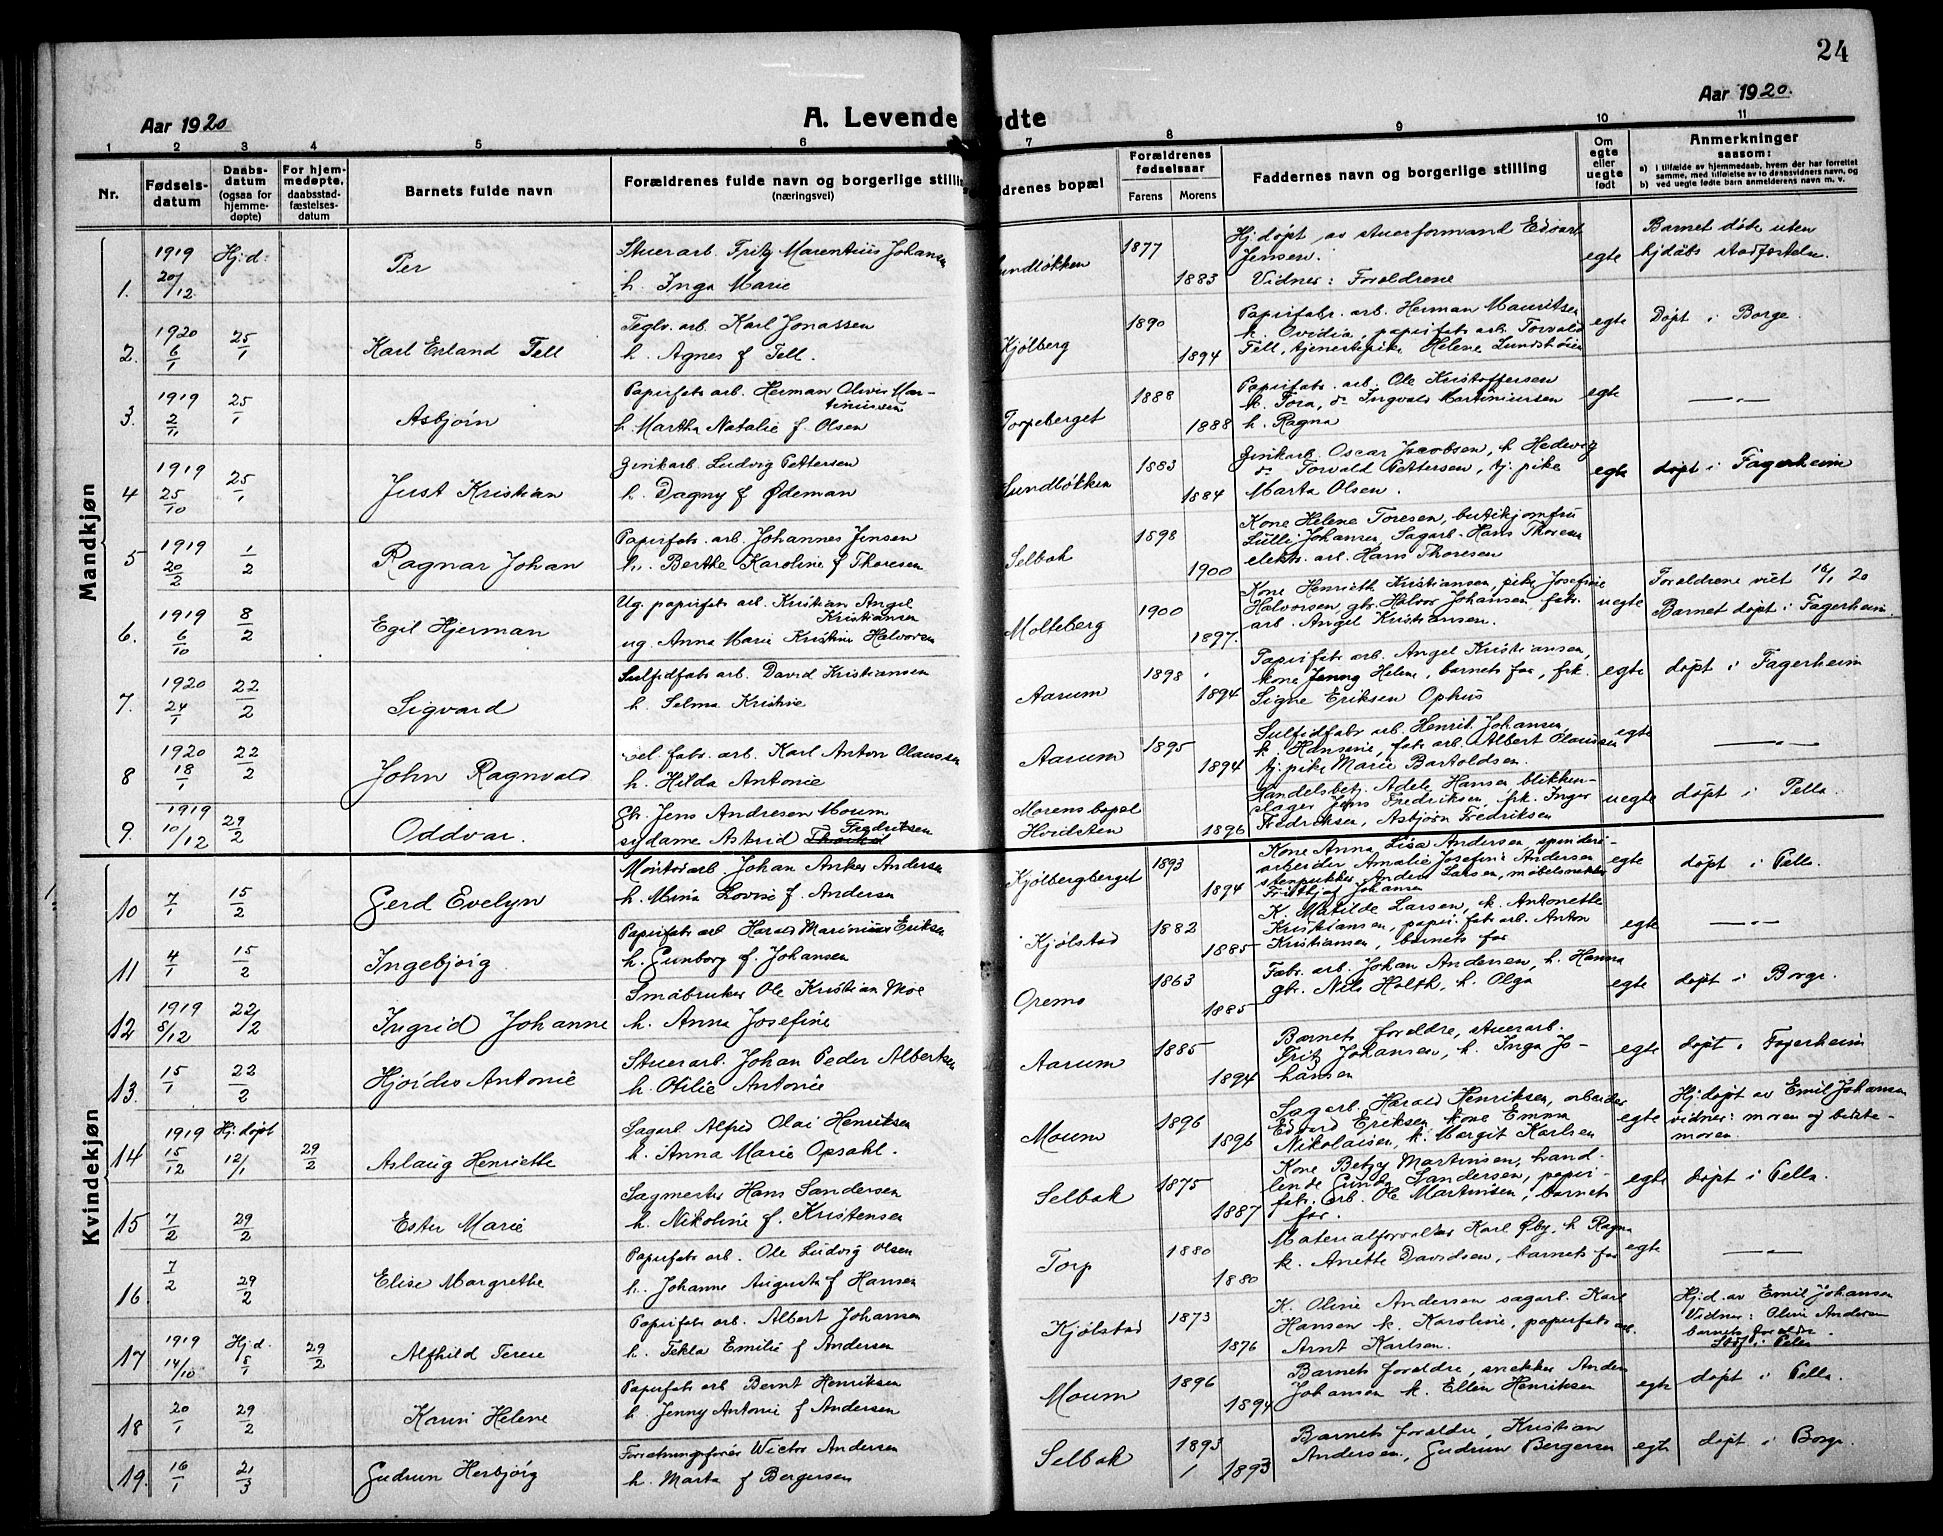 24
Aar 1920
A. Levende
ødte
Aar 1920.
1 2 3 4 5 6 7 8 9 10 11
Nr.
Fødselsdatum
Daabsdatum (ogsaa for hjemmedøpte)
For hjemmedøpte, daabsstadfæstelsesdatum
Barnets fulde navn
Forældrenes fulde navn og borgerlige stilling
(næringsvei)
drenes bopæl
Forældrenes fødselsaar
Farens Morens
Faddernes navn og borgerlige stilling
Om egte eller uegte født
Anmerkninger
saasom:
a) i tilfælde av hjemmedaab, hvem der har forrettet samme, med tilføielse av to daabsvidners navn, og
b) ved uegte fødte barn anmelderens navn m. v.
Mandkjøn
1. 1919 20/12 Hj.d. Per
Stuerarb. Fritz Marentius Johansen
h. Inga Marie
Sundløkken 1877 1883
Hj.døpt av stuerformand Edvart
Jensen.
Vidner: Foreldrene
egte
Barnet døde uten
hjdåbs stadfæstelse.
2. 1920 6/1 25/1 Karl Erland Tell
Teglv. arb. Karl Jonassen
h. Agnes f Tell.
Kjølberg 1890 1894
Papirfabr. arb. Herman Mauritsen
k. Ovidia, papirfabr. arb. Torvald
Tell, tjenestepike Helene Lundstøien
egte Døpt i Borge.
3. 1919 2/11 25/1 Asbjørn
Papirfabr. arb. Herman Oliver Martiniusen
h. Martha Natalie f. Olsen
Torpeberget 1888 1888
Papirfabr. arb. Ole Kristoffersen
k. Tora, do Ingvald Martiniussen
h. Ragna
egte — " —
4 1919 25/10 25/1 Just Kristian
Ludvig Pettersen
h. Dagny f Ødeman
Sundløkken 1883 1884
Oscar Jacobsen, h Hedevig
do Torvald Pettersen, tj. pike
Marta Olsen.
egte døpt i Fagerheim
5 1919 20/2 1/2 Ragnar Johan
Papirfabr. arb. Johannes Jensen
h. Berthe Karoline f Thoresen
Selbak 1898 1900
Kone Helene Toresen, butikjomfru
Lulli Johansen, Sagarb. Hans Thoresen
elektr. arb. Hans Thoresen
6. 1919 6/10 8/2 Egil Hjerman
Ug. papirfabr arb. Kristian Angel
Kristiansen
ug. Anna Marie Kristine Halvorsen
Molteberg 1900 1897.
Kone Henriette Kristiansen, pike Josefine
Halvorsen, gbr. Halvor Johansen, fabr.
arb. Angel Kristiansen.
uegte
Foreldrene viet 16/1 20
Barnet døpt i Fagerheim
7. 1920 24/1 22/2 Sigvard
Sulfidfabr arb. David Kristiansen
h. Selma Kristine
Aarum 1898 1894
Papirfabr. arb. Angel Kristiansen,
kone Jenny Helene, barnets far, frk.
Signe Eriksen Ophus
egte døpt i Fagerheim
8 1920 18/1 22/2 John Ragnvald
cel. fabr. arb. Karl Anton Olaussen
h. Hilda Antonie
Aarum 1895 1894
Sulfidfabr arb. Henrik Johansen,
k. Hansine, fabr arb. Albert Olaussen
tj. pike Marie Bartoldsen.
egte — " —
9. 1919 10/12 29/2 Oddvar.
Gbr. Jens Andresen Moum
sydame Astrid Fredriksen
Morens bopæl Hvidsten 1896
Handelsbetj. Adele Hansen blikkenslager
Jens Fredriksen, frk. Inger
Fredriksen, Asbjørn Fredriksen
uegte døpt i Pella
Kvindekjøn
10 7/1 15/2 Gerd Evelyn
Johan Anker Andersen
h. Mina Lovise f. Andersen
Kjølbergberget 1893 1894
Kone Anna Lisa Andersen,
arbeider Amalie Josefine Andersen
Anders Larsen, møbelsnekker
Fritthjof Johansen
egte døpt i Pella.
11 4/1 15/2 Ingebjørg
Papirfabr arb Harald Marinius Eriksen
h. Gunborg f. Johansen
Kjølstad 1882 1885
K. Matilde Larsen, k. Antonette
Kristiansen, papir. fabr arb. Anton
Kristiansen, barnets far
egte — " —
12 1919 8/12 22/2 Ingrid Johanne
Småbruker Ole Kristian Moe
h. Anna Josefine
Oremo 1863 1885
Fabr. arb. Johan Andersen, h. Hanna
gbr. Nils Holth, h. Olga
egte døpt i Borge.
13. 15/1 22/2 Hjørdis Antonie
Stuerarb. Johan Peder Albertsen
h. Otilie Antonie
Aarum 1885 1894
Barnets foreldre, stuerarb.
Fritz Johansen, k. Inga Johansen
egte døpt i Fagerheim
14 1919 15/12 Hj:døpt 12/1 29/2 Aslaug Henriette
Sagarb Alfred Olai Henriksen
h. Anna Marie Opsahl.
Moum 1896 1896
Sagarb. Harald Henriksen, arbeider
Edvard Eriksen kone Emma
Nikolaisen, k. Margit Karlsen
egte
Hj:døpt av Emil Johansen
vidner: moren og bestemoren
15 7/2 29/2 Ester Marie
Sagmester Hans Sandersen
h. Nikoline f. Kristensen
Selbak 1875 1887
Kone Betzy Martinsen, handlende
Gunda Sandersen, papirfabr.
arb. Ole Martinsen, barnets
far.
egte døpt i Pella.
16 7/2 29/2 Elise Margrethe
Papirfabr arb. Ole Ludvig Olsen
h. Johanne Augusta f Hansen
Torp 1880 1880
Materialforvalter Karl Øby, h Ragna
k. Anette Davidsen, barnets far
egte — " —
17 1919 14/10 Hj:d. 8/1 29/2 Alfhild Terese
Papirfabr arb. Albert Johansen
h. Tekla Emilie f Andersen
Kjølstad 1873 1876
K. Oline Andersen sagarb. Karl
Hansen k. Karoline, papirfabr arb.
Arnt Karlsen.
Hj:d. av Emil Johansen
Vidner: Oline Andersen
barnets foreldre.
Stdf. i Pella
18 20/1 29/2 Karin Helene
Papirfabr arb Bernt Henriksen
h Jenny Antonie f Andersen
Moum 1896 1894
Barnets foreldre, snekker Anders
Johansen k. Ellen Henriksen
egte døpt i Pella.
19. 16/1 21/3 Gudrun Herbjørg
Forretningsfører Victor Andersen
h. Marta f Bergersen
Selbak 1893 1893
Barnets foreldre, Kristian
Andersen, Gudrun Bergersen
egte døpt i Borge.